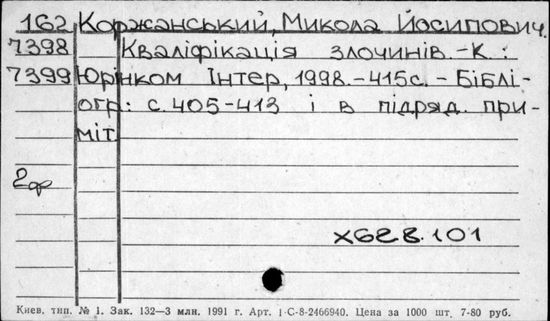 162 Коржанський, Микола Йосипович.
7398 Кваліфікація злочинів.-К.:
7399 Юрінком Інтер, 1998.-415с.-Біблі-
огр: с.405-413 і в підряд. при-
міт.
2ф
х628.101
Киев. тип. № 1. Зак. 132—3 млн. 1991 г. Арт. 1-С-8-2466940. Цена за 1000 шт. 7-80 руб.